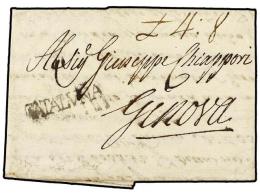 4:8
Al Sigr Giuseppe Chiappori
CATALUÑA
Genova